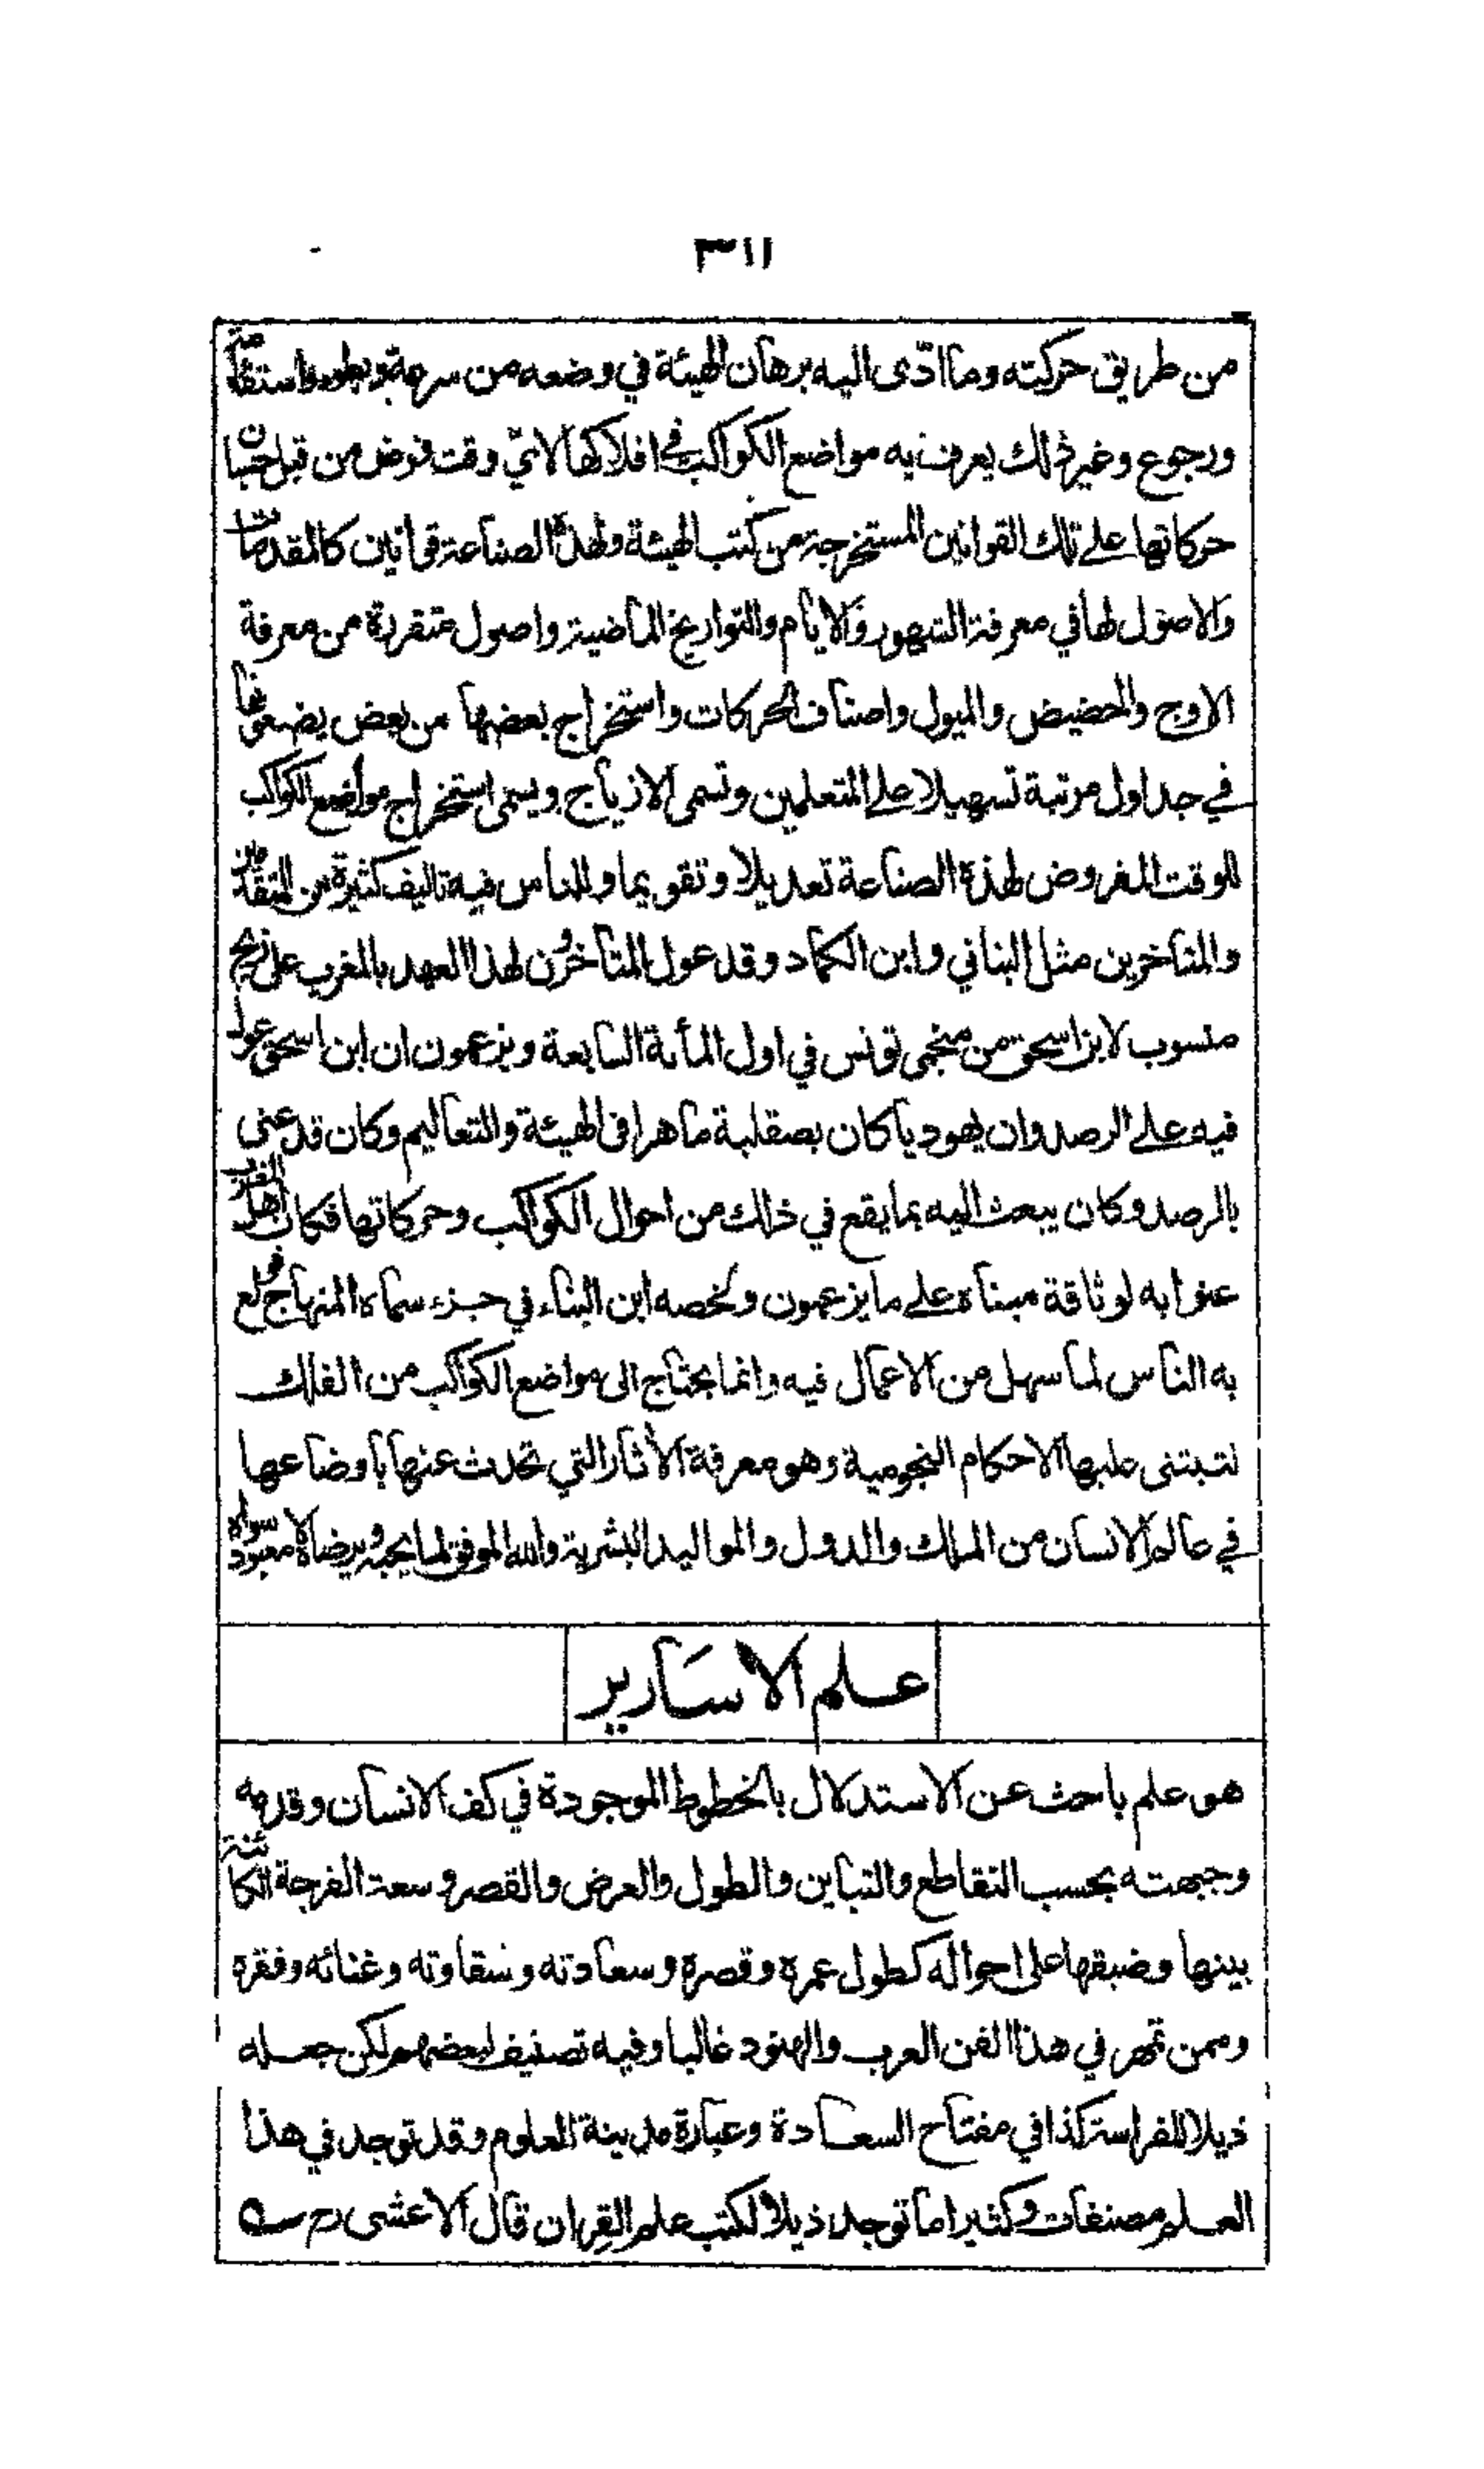 ٣١١
من طريق حركته وما ادّى اليه برهان الهيئة في وضعه من سرعة وبطوء واستقامة
ورجوع وغير ذلك يعرف به مواضع الكواكب في افلاكها لايّ وقت فرض من قبل حسبان
حركاتها على تلك القوانين المستخرجة من كتب الهيئة ولهذه الصناعة قوانين كالمقدمات
والاصول لها في معرفة الشهور والايام والتواريخ الماضية واصول متقررة من معرفة
الاوج والحضيض والميول واصناف الحركات واستخراج بعضها من بعض يضعونها
في جداول مرتبة تسهيلا على المتعلمين وتسمى الازياج ويسمى استخراج مواضع الكواكب
للوقت المفروض لهذه الصناعة تعديلا وتقويما وللناس فيه تاليف كثيرة من المتقدمين
والمتاخرين مثل البتاني وابن الكماد وقد عول المتاخرون لهذا العهد بالمغرب على زيج
منسوب لابن اسحق من منجمى تونس في اول المأىة السابعة ويزعمون ان ابن اسحق عول
فيه على الرصد وان يهوديا كان بصقلية ماهرا في الهيئة والتعاليم وكان قد عنى
بالرصد وكان يبعث اليه بما يقع في ذلك من احوال الكواكب وحركاتها فكان اهل المغرب
عنوا به لوثاقة مبناه على ما يزعمون ولخصه ابن البناء في جزء سماه المنهاج فولع
به الناس لما سهل من الاعمال فيه وانما يحتاج الى مواضع الكواكب من الفلك
لتبتنى عليها الاحكام النجومية وهو معرفة الأثار التي تحدث عنها باوضاعها
في عالم الانسان من الملك والدول والمواليد البشرية والله الموفق لما يحبه ويرضاه لا معبود سواه
علم الاسارير
هو علم باحث عن الاستدلال بالخطوط الموجودة في كف الانسان وقدمه
وجبهته بحسب التقاطع والتباين والطول والعرض والقصر وسعة الفرجة الكائنة
بينها وضيقها على احواله كطول عمره وقصره وسعادته وشقاوته وغنائه وفقره
وممن تمهر في هذا الفن العرب والهنود غالبا وفيه تصنيف لبعضهم لكن جعله
ذيلا للفراسة كذا في مفتاح السعادة وعبارة مدينة العلوم وقد توجد في هذا
العلم مصنفات وكثيرا ما توجد ذيلا لكتب علم القران قال الاعشى رح